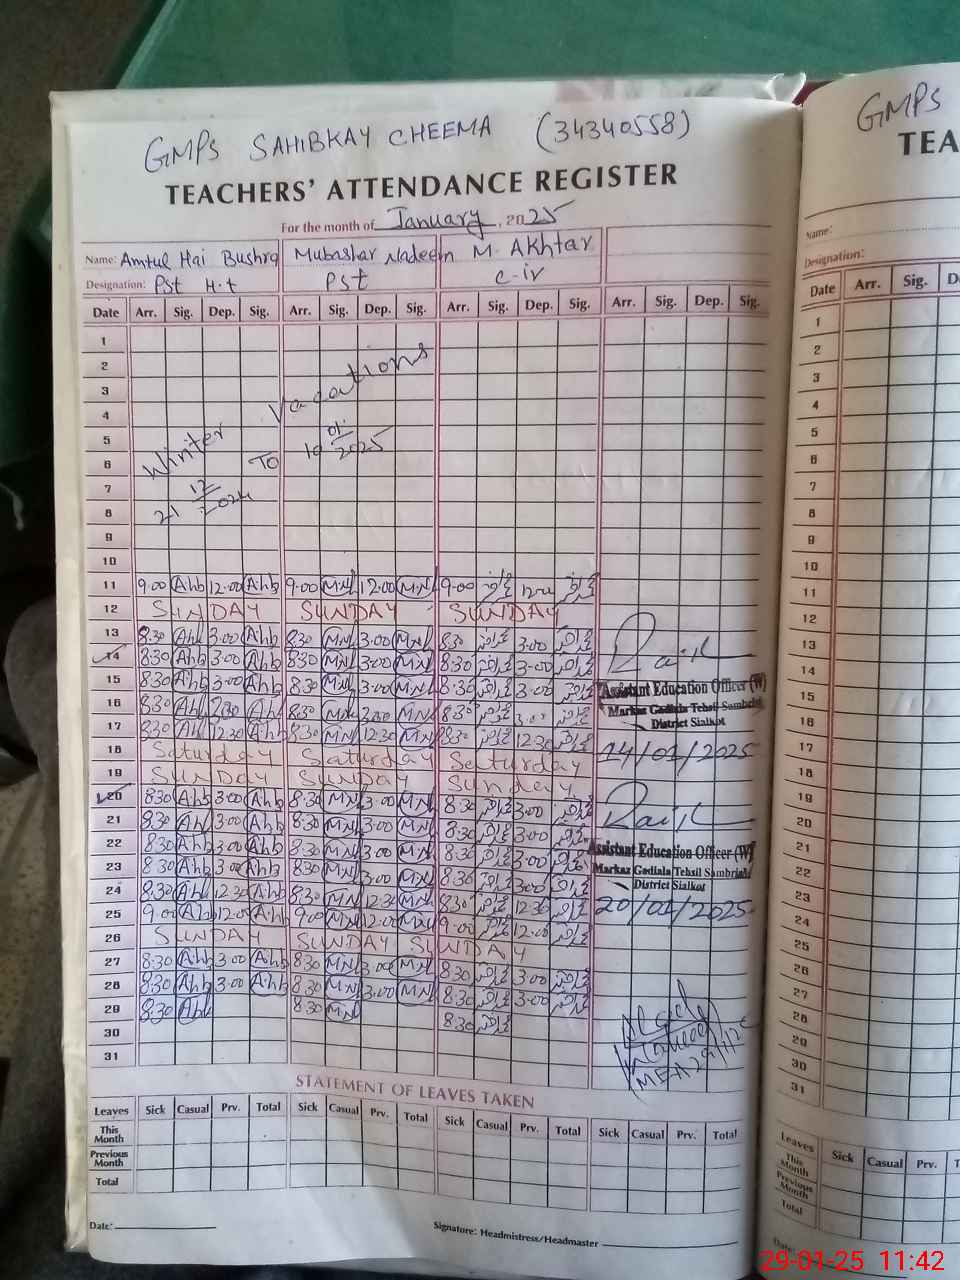 GMPS SAHIBKAY CHEEMA (34340558)
TEACHERS' ATTENDANCE REGISTER
For the month of January, 2025
Name: Amtul Hai Bushra Mubashar Nadeem M. Akhtar
Designation: Pst H.t Pst C-iv
Date Arr. Sig. Dep. Sig. Arr. Sig. Dep. Sig. Arr. Sig. Dep. Sig. Arr. Sig. Dep. Sig.
1
2
3
4
5
6
7
8
9
10
Winter Vacations
21 12/2024 To 10 01/2025
11 9.00 Ahb 12.00 Ahb 9.00 MN 12.00 MN 9.00 12.00
12 SUNDAY SUNDAY SUNDAY
13 8.30 Ahb 3.00 Ahb 8.30 MN 3.00 MN 8.30 3.00
14 8.30 Ahb 3.00 Ahb 8.30 MN 3.00 MN 8.30 3.00
15 8.30 Ahb 3.00 Ahb 8.30 MN 3.00 MN 8.30 3.00
16 8.30 Ahb 3.00 Ahb 8.30 MN 3.00 MN 8.30 3.00
17 8.30 Ahb 12.30 Ahb 8.30 MN 12.30 MN 8.30 12.30
18 Saturday Saturday Saturday
19 SUNDAY SUNDAY Sunday
20 8.30 Ahb 3.00 Ahb 8.30 MN 3.00 MN 8.30 3.00
21 8.30 Ahb 3.00 Ahb 8.30 MN 3.00 MN 8.30 3.00
22 8.30 Ahb 3.00 Ahb 8.30 MN 3.00 MN 8.30 3.00
23 8.30 Ahb 3.00 Ahb 8.30 MN 3.00 MN 8.30 3.00
24 8.30 Ahb 12.30 Ahb 8.30 MN 12.30 MN 8.30 12.30
25 9.00 Ahb 12.00 Ahb 9.00 MN 12.00 MN 9.00 12.00
26 SUNDAY SUNDAY SUNDAY
27 8.30 Ahb 3.00 Ahb 8.30 MN 3.00 MN 8.30 3.00
28 8.30 Ahb 3.00 Ahb 8.30 MN 3.00 MN 8.30 3.00
29 8.30 Ahb 8.30 MN 8.30
30
31
Assistant Education Officer (W)
Markaz Gadiala Tehsil Sambrial
District Sialkot
14/01/2025
Assistant Education Officer (W)
Markaz Gadiala Tehsil Sambrial
District Sialkot
20/01/2025
MEA
STATEMENT OF LEAVES TAKEN
Leaves Sick Casual Prv. Total Sick Casual Prv. Total Sick Casual Prv. Total Sick Casual Prv. Total
This Month
Previous Month
Total
Date:
Signature: Headmistress/Headmaster
GMPS
TEA
Name:
Designation:
Date Arr. Sig. D
1
2
3
4
5
6
7
8
9
10
11
12
13
14
15
16
17
18
19
20
21
22
23
24
25
26
27
28
29
30
31
Leaves Sick Casual Prv. T
This Month
Previous Month
Total
Date:
29-01-25 11:42